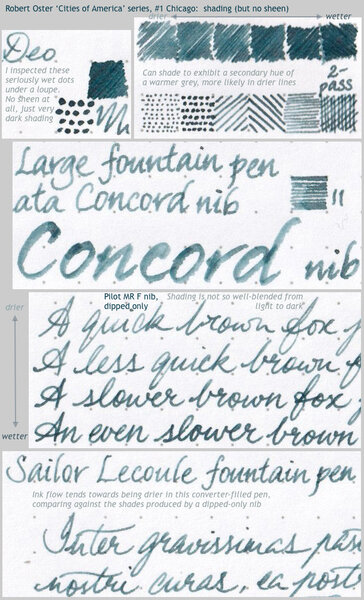 Robert Oster ‘Cities of America’ series, #1 Chicago: shading (but no sheen)
drier
wetter
Deo
I inspected these
seriously wet dots
under a loupe.
No sheen at
all, just very
dark shading
Can shade to exhibit a secondary hue of
a warmer grey, more likely in drier lines
2-
pass
Large fountain pen
ata Concord nib
Concord nib
Pilot MR F nib,
dipped only
Shading is not so well-blended from
light to dark
drier
A quick brown fox j
A less quick brown f
A slower brown fox
An even slower brown
wetter
Sailor Lecoule fountain pen
Ink flow tends towards being drier in this converter-filled pen,
comparing against the shades produced by a dipped-only nib
Inter gravissimas pas
nostri curas, ea posts